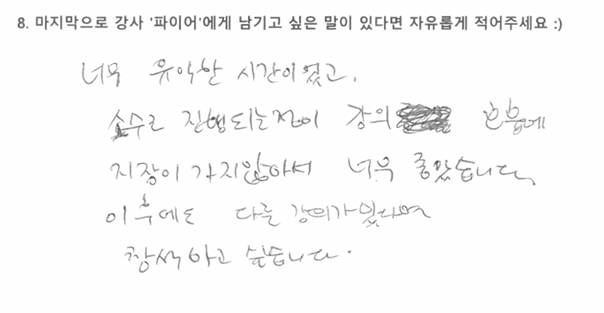 8. 마지막으로 강사 '파이어'에게 남기고 싶은 말이 있다면 자유롭게 적어주세요 :)
너무 유익한 시간이었고,
소수로 진행되는점이 강의 흐름에
지장이 가지않아서 너무 좋았습니다.
이후에도 다른 강의가 있다면
참석하고 싶습니다.